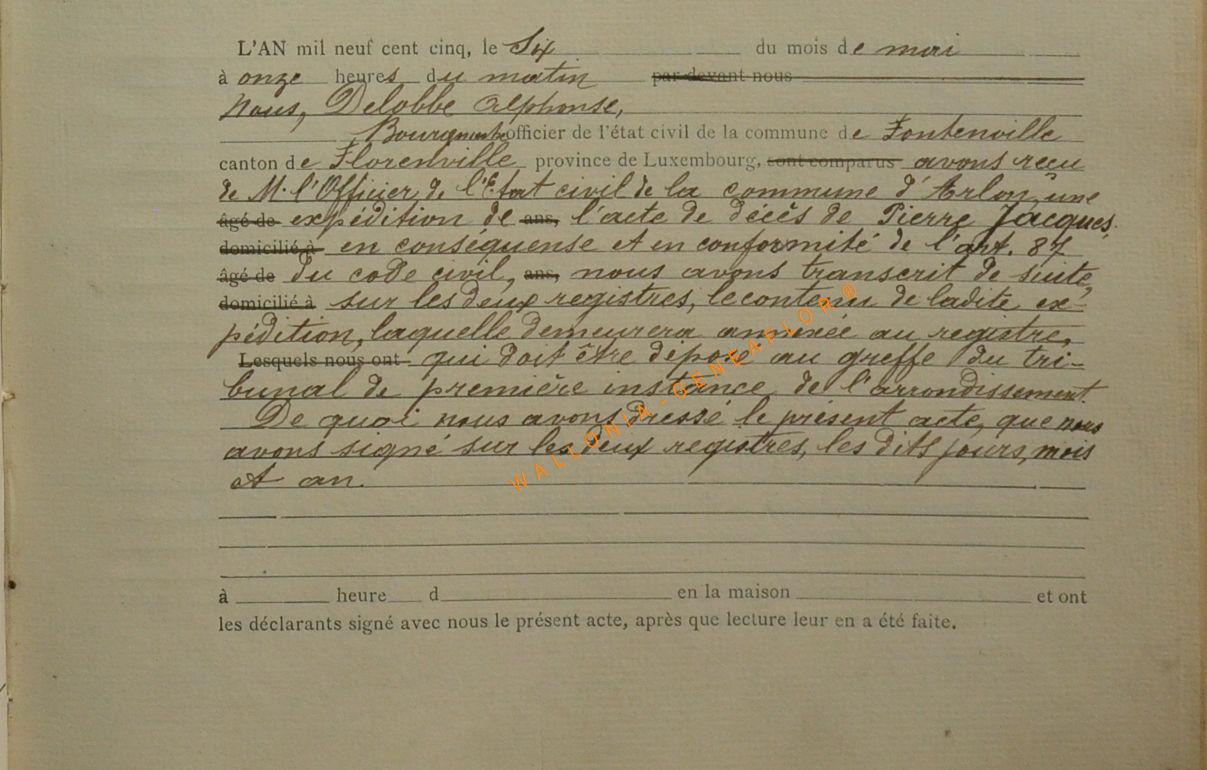 L'AN mil neuf cent cinq, le Six du mois de mai
à onze heures du matin par-devant nous
Nous, Delobbe Alphonse,
Bourgmestre officier de l'état civil de la commune de Fontenoille
canton de Florenville province de Luxembourg, sont comparus avons reçu
de M. l'Officier de l'Etat civil de la commune d'Arlon, une
âgé de expédition de ans, l'acte de décès de Pierre Jacques,
domicilié à en conséquense et en conformité de l'art. 87
âgé de du code civil, ans, nous avons transcrit de suite,
domicilié à sur les deux registres, le contenu de ladite ex-
pédition, laquelle demeurera annexée au registre,
Lesquels nous ont qui doit être déposé au greffe du tri-
bunal de première instance de l'arrondissement.
De quoi nous avons dressé le présent acte, que nous
avons signé sur les deux registres, les dits jours, mois
et an.
à heure d en la maison et ont
les déclarants signé avec nous le présent acte, après que lecture leur en a été faite.
WALLONIA - GENEAFLOR®